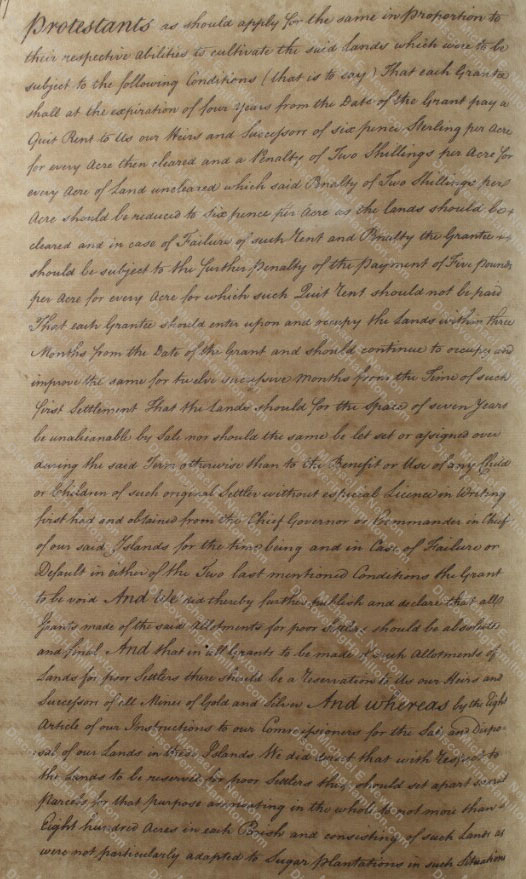 Protestants as should apply for the same in Proportion to
their respective Abilities to cultivate the said Lands which were to be
subject to the following Conditions (that is to say) That each Grantee
shall at the expiration of four Years from the Date of the Grant pay a
Quit Rent to Us our Heirs and Successors of six pence Sterling per Acre
for every Acre then cleared and a Penalty of Two Shillings per Acre for
every Acre of Land uncleared which said Penalty of Two Shillings per
Acre should be reduced to Six pence per Acre as the lands should be
cleared and in case of Failure of such Rent and Penalty the Grantee
should be subject to the further Penalty of the Payment of Five Pounds
per Acre for every Acre for which such Quit Rent should not be paid
That each Grantee should enter upon and occupy the Lands within three
Months from the Date of the Grant and should continue to occupy and
improve the same for twelve sucessive Months from the Time of such
first Settlement That the Lands should for the Space of seven Years
be unalienable by Sale nor should the same be let set or assigned over
during the said Term otherwise than to the Benefit or Use of any Child
or Children of such original Settler without especial Licence in Writing
first had and obtained from the Chief Governor or Commander in Chief
of our said Islands for the time being and in Case of Failure or
Default in either of the Two last mentioned Conditions the Grant
to be void And We did thereby further publish and declare that all
Grants made of the said Allotments for poor Settlers should be absolute
and final And that in all Grants to be made of such Allotments of
Lands for poor Settlers there should be a Reservation to Us our Heirs and
Successors of all Mines of Gold and Silver And whereas by the Eight
Article of our Instructions to our Commissioners for the Sale and Dispo-
sal of our Lands in these Islands We did direct that with Respect to
the Lands to be reserved for poor Settlers they should set apart
Parcels for that purpose amounting in the whole to not more than
Eight hundred Acres in each Parish and consisting of such Lands as
were not particularly adapted to Sugar plantations in such Situations